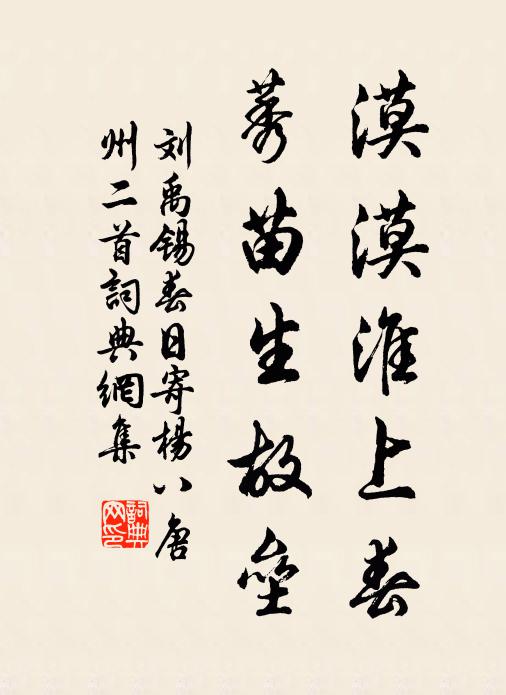 漠漠淮上春
莠苗生故壘
刘禹锡春日寄楊八唐
州二首詞典網集
詞典
网印